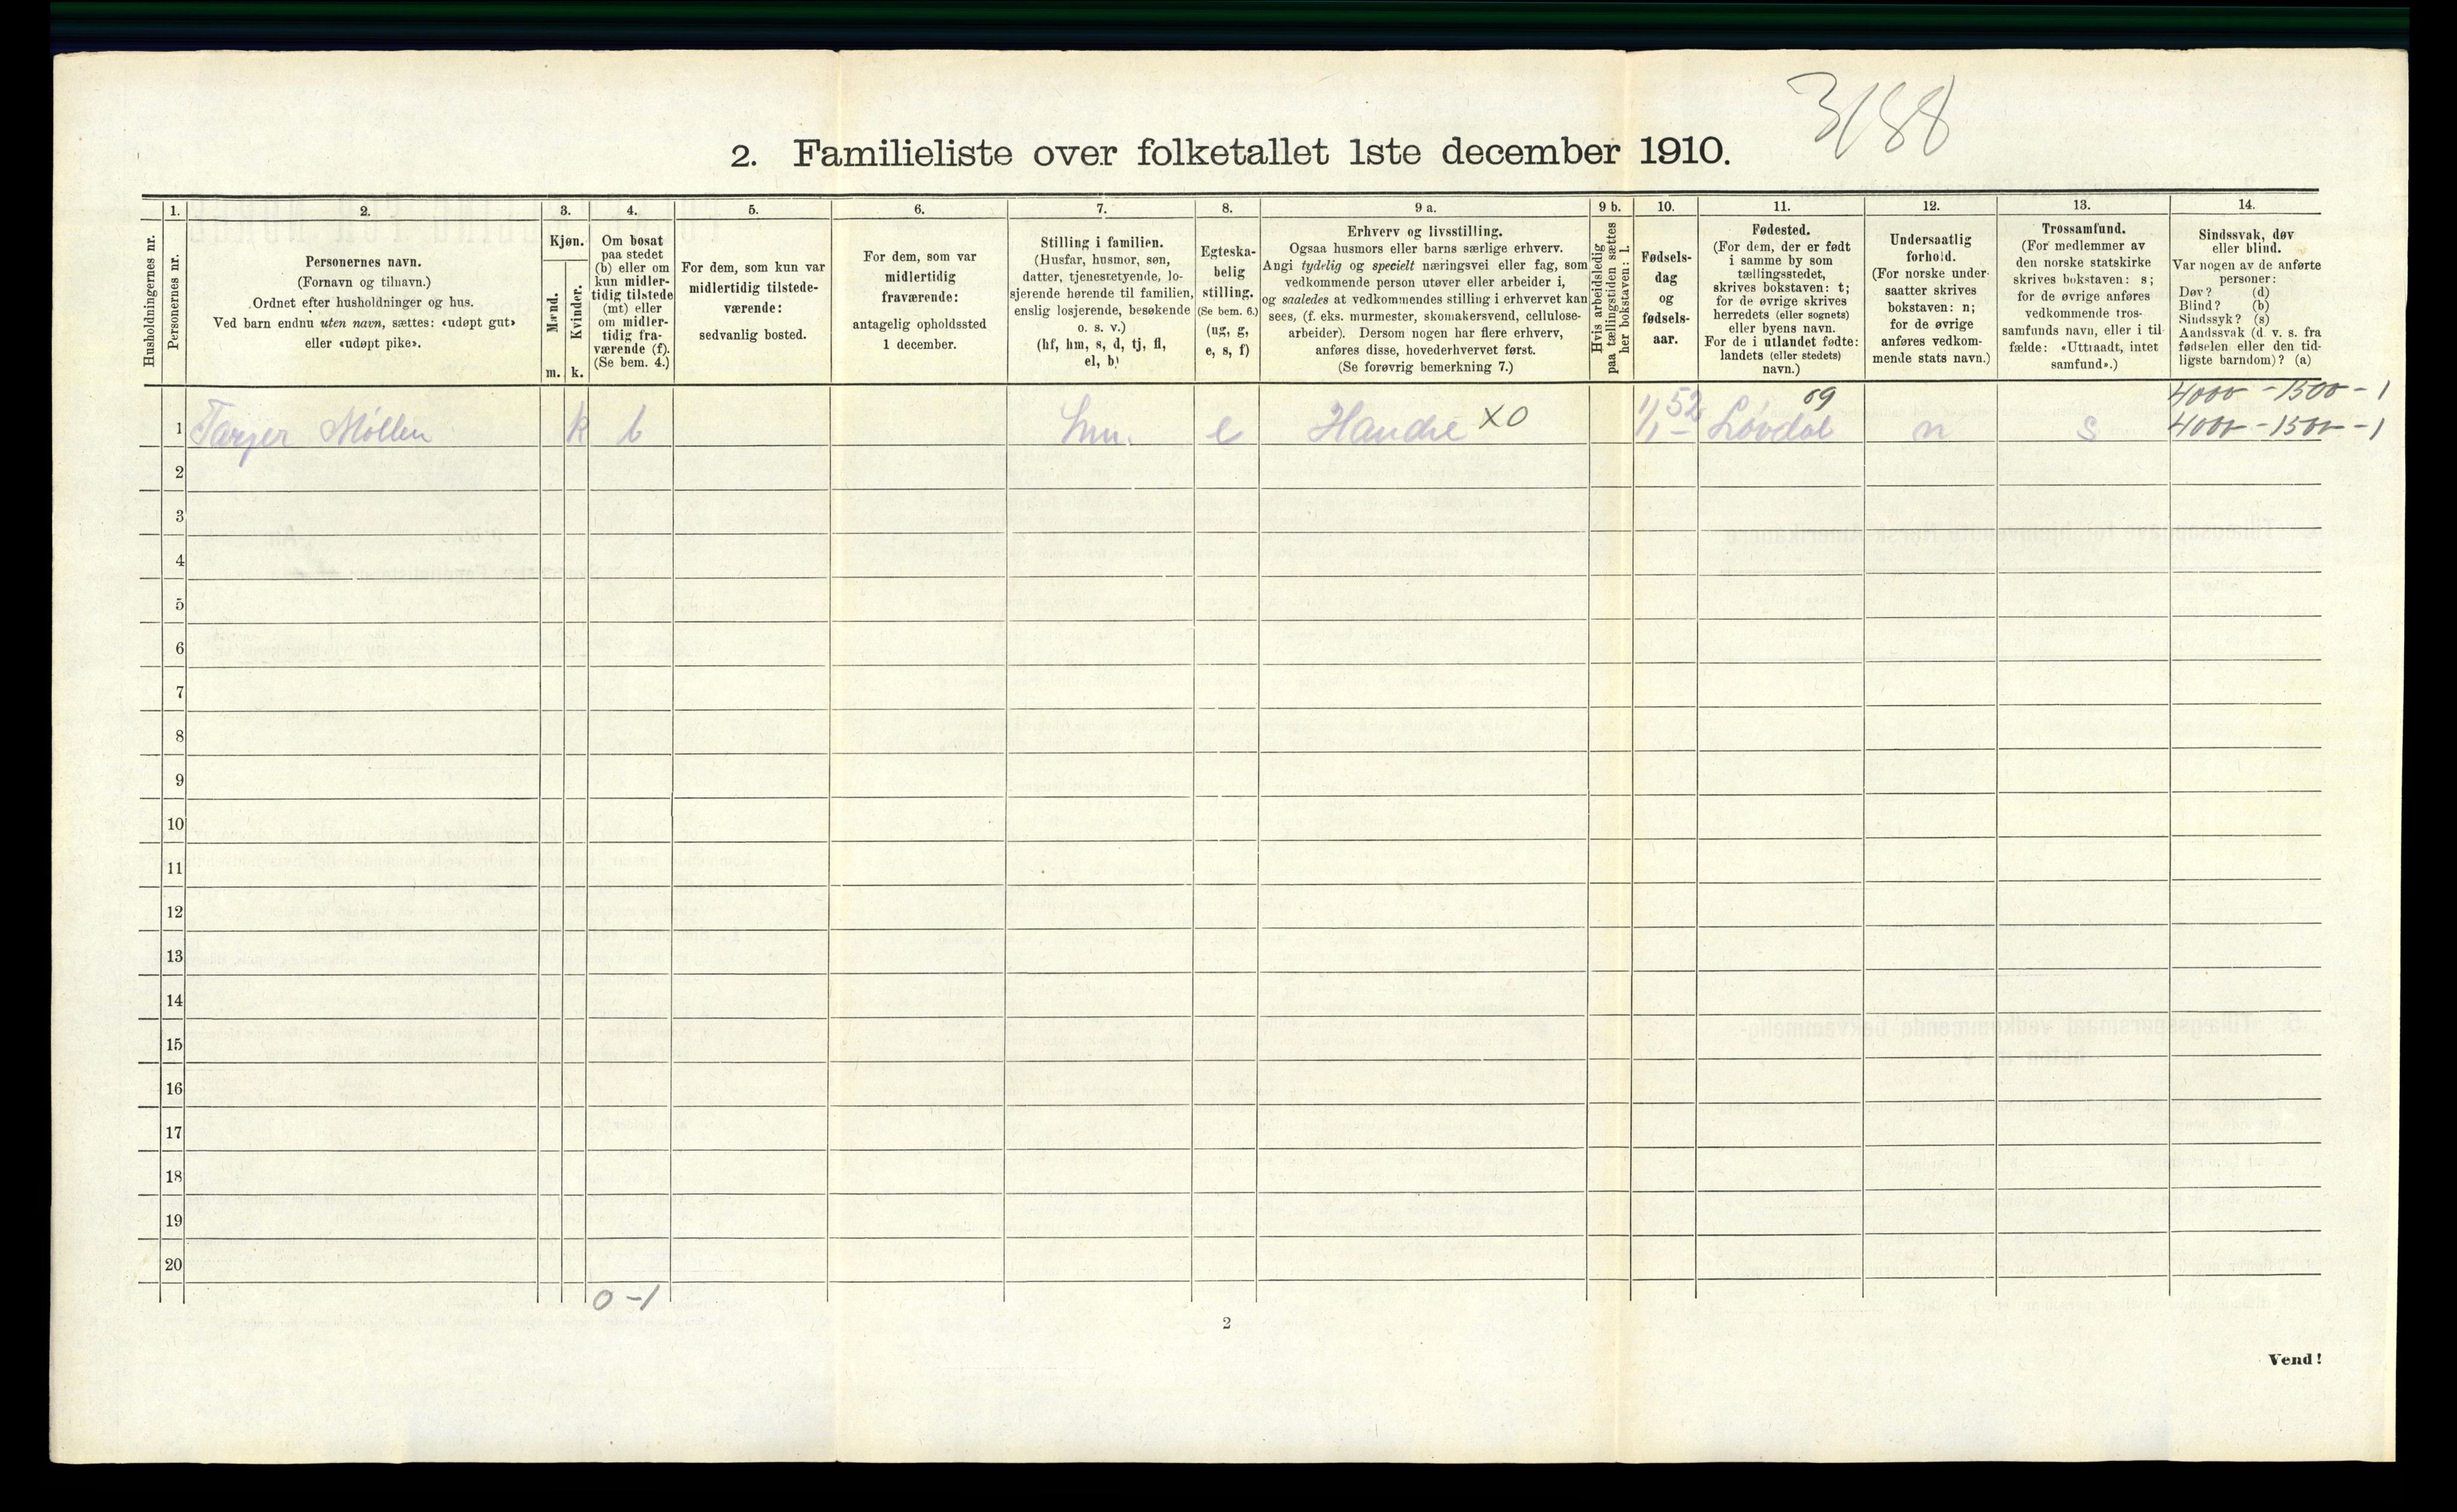 3188
2. Familieliste over folketallet 1ste december 1910.
Husholdningernes nr.
1.
Personernes nr.
2.
Personernes navn.
(Fornavn og tilnavn.)
Ordnet efter husholdninger og hus.
Ved barn endnu uten navn, sættes: «udøpt gut»
eller «udøpt pike».
3.
Kjøn.
Mænd.
Kvinder.
m. k.
4.
Om bosat
paa stedet
(b) eller om
kun midler-
tidig tilstede
(mt) eller
om midler-
tidig fra-
værende (f).
(Se bem. 4.)
5.
For dem, som kun var
midlertidig tilstede-
værende:
sedvanlig bosted.
6.
For dem, som var
midlertidig
fraværende:
antagelig opholdssted
1 december.
7.
Stilling i familien.
(Husfar, husmor, søn,
datter, tjenestetyende, lo-
sjerende hørende til familien,
enslig losjerende, besøkende
o. s. v.)
(hf, hm, s, d, tj, fl,
el, b)
8.
Egteska-
belig
stilling.
(Se bem. 6.)
(ug, g,
e, s, f)
9 a.
Erhverv og livsstilling.
Ogsaa husmors eller barns særlige erhverv.
Angi tydelig og specielt næringsvei eller fag, som
vedkommende person utøver eller arbeider i,
og saaledes at vedkommendes stilling i erhvervet kan
sees, (f. eks. murmester, skomakersvend, cellulose-
arbeider). Dersom nogen har flere erhverv,
anføres disse, hovederhvervet først.
(Se forøvrig bemerkning 7.)
9 b.
Hvis arbeidsledig
paa tællingstiden sættes
her bokstaven: l.
10.
Fødsels-
dag
og
fødsels-
aar.
11.
Fødested.
(For dem, der er født
i samme by som
tællingsstedet,
skrives bokstaven: t;
for de øvrige skrives
herredets (eller sognets)
eller byens navn.
For de i utlandet fødte:
landets (eller stedets)
navn.)
12.
Undersaatlig
forhold.
(For norske under-
saatter skrives
bokstaven: n;
for de øvrige
anføres vedkom-
mende stats navn.)
13.
Trossamfund.
(For medlemmer av
den norske statskirke
skrives bokstaven: s;
for de øvrige anføres
vedkommende tros-
samfunds navn, eller i til-
fælde: «Uttraadt, intet
samfund».)
14.
Sindssvak, døv
eller blind.
Var nogen av de anførte
personer:
Døv? (d)
Blind? (b)
Sindssyk? (s)
Aandssvak (d. v. s. fra
fødselen eller den tid-
ligste barndom)? (a)
4000 - 1500 - 1
1 Møllen k b hm. e Handle XO 1/1 52 Løvdal 69 n s 4000 - 1500 - 1
2
3
4
5
6
7
8
9
10
11
12
13
14
15
16
17
18
19
20
0 - 1
2
Vend!